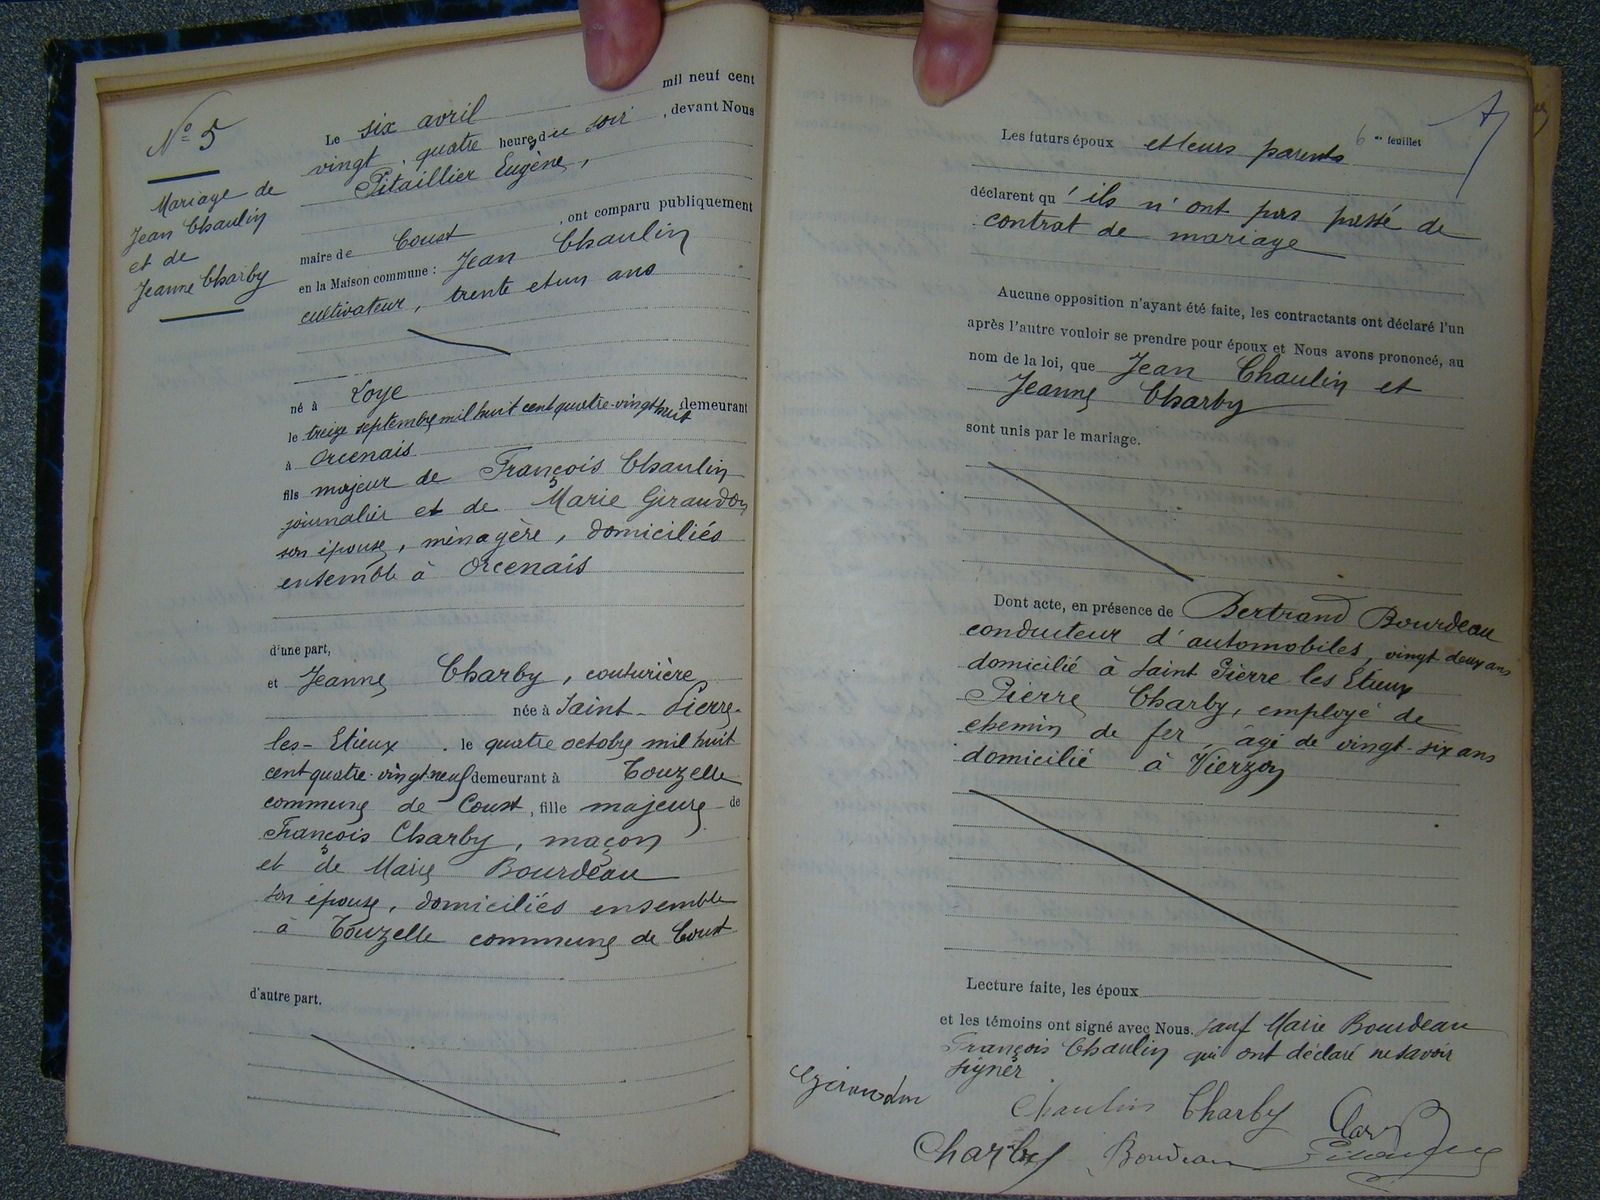 N° 5
Mariage de
Jean Chaulin
et de
Jeanne Charby
Le six avril mil neuf cent
vingt. quatre heures du soir, devant Nous
Pitaillier Eugène,
maire de Coust, ont comparu publiquement
en la Maison commune : Jean Chaulin
cultivateur, trente et un ans
né à Loye
le treize septembre mil huit cent quatre-vingt huit demeurant
à Orcenais
fils majeur de François Chaulin
journalier et de Marie Giraudon
son épouse, ménagère, domiciliés
ensemble à Orcenais
d'une part,
et Jeanne Charby, couturière
née à Saint-Pierre-
les-Etieux. le quatre octobre mil huit
cent quatre-vingt-neuf demeurant à Touzelle
commune de Coust, fille majeure de
François Charby, maçon
et de Marie Bourdeau
son épouse, domiciliés ensemble
à Touzelle commune de Coust
d'autre part.
7
Les futurs époux et leurs parents 6me feuillet
déclarent qu'ils n'ont pas passé de
contrat de mariage
Aucune opposition n'ayant été faite, les contractants ont déclaré l'un
après l'autre vouloir se prendre pour époux et Nous avons prononcé, au
nom de la loi, que Jean Chaulin et
Jeanne Charby
sont unis par le mariage.
Dont acte, en présence de Bertrand Bourdeau
conducteur d'automobiles, vingt deux ans
domicilié à Saint Pierre les Etieux
Pierre Charby, employé de
chemin de fer, âgé de vingt-six ans
domicilié à Vierzon
Lecture faite, les époux
et les témoins ont signé avec Nous. sauf Marie Bourdeau
François Chaulin qui ont déclaré ne savoir
signer.
Giraudon
Chaulin Charby
Charby Bourdeau